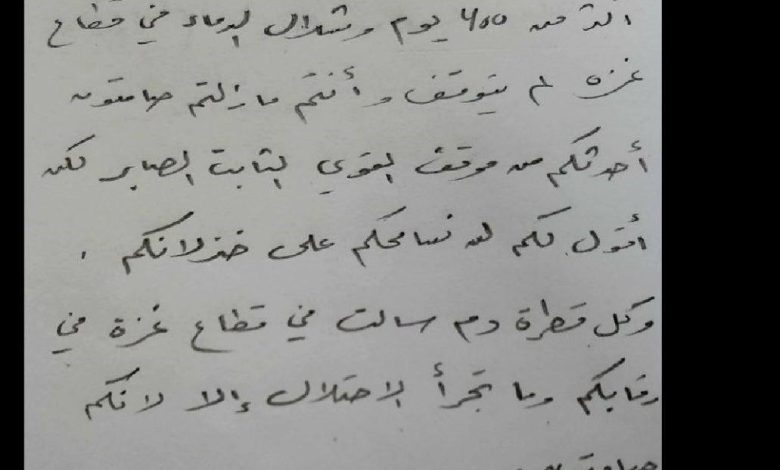 أكثر من 400 يوم وشلال الدماء في قطاع
غزه لم يتوقف وأنتم مازلتم صامتون
أحدثكم من موقف القوي الثابت الصابر لكن
أقول لكم لن نسامحكم على خذلانكم .
وكل قطرة دم سالت في قطاع غزة في
رقابكم وما تجرأ الاحتلال إلا لانكم